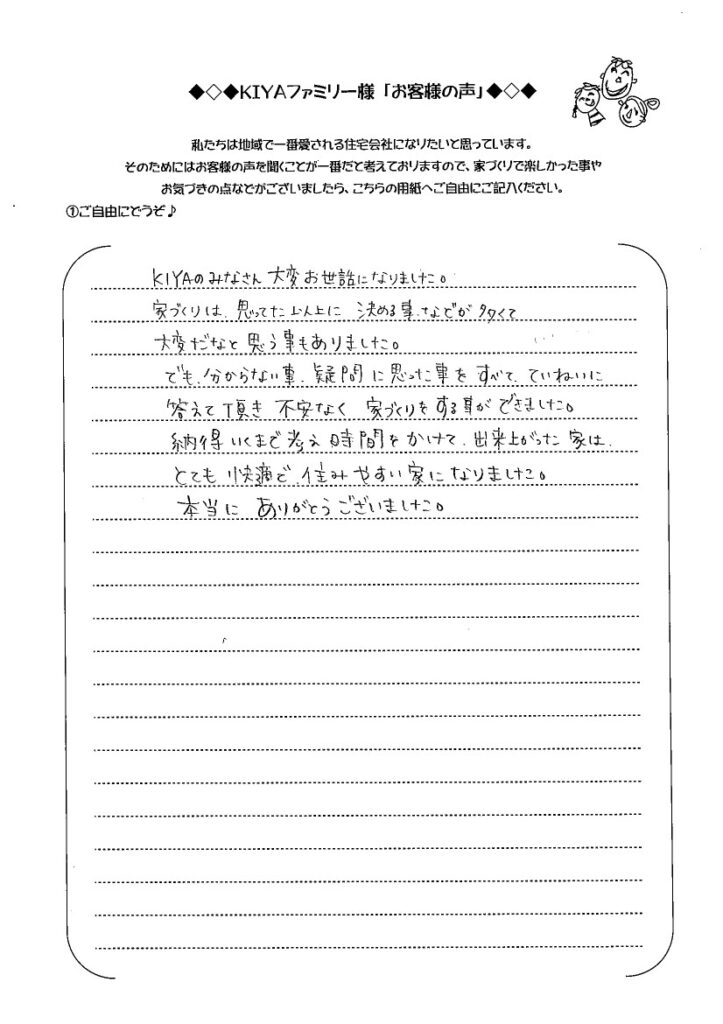 ◆◇◆KIYAファミリー様「お客様の声」◆◇◆
私たちは地域で一番愛される住宅会社になりたいと思っています。
そのためにはお客様の声を聞くことが一番だと考えておりますので、家づくりで楽しかった事や
お気づきの点などがございましたら、こちらの用紙へご自由にご記入ください。
①ご自由にどうぞ♪
KIYAのみなさん 大変お世話になりました。
家づくりは、思ってた以上に 決める事などが多くて
大変だなと思う事もありました。
でも、分からない事、疑問に思った事をすべて、ていねいに
答えて頂き 不安なく 家づくりをする事ができました。
納得いくまで考え時間をかけて、出来上がった家は、
とても快適で、住みやすい家になりました。
本当に ありがとうございました。